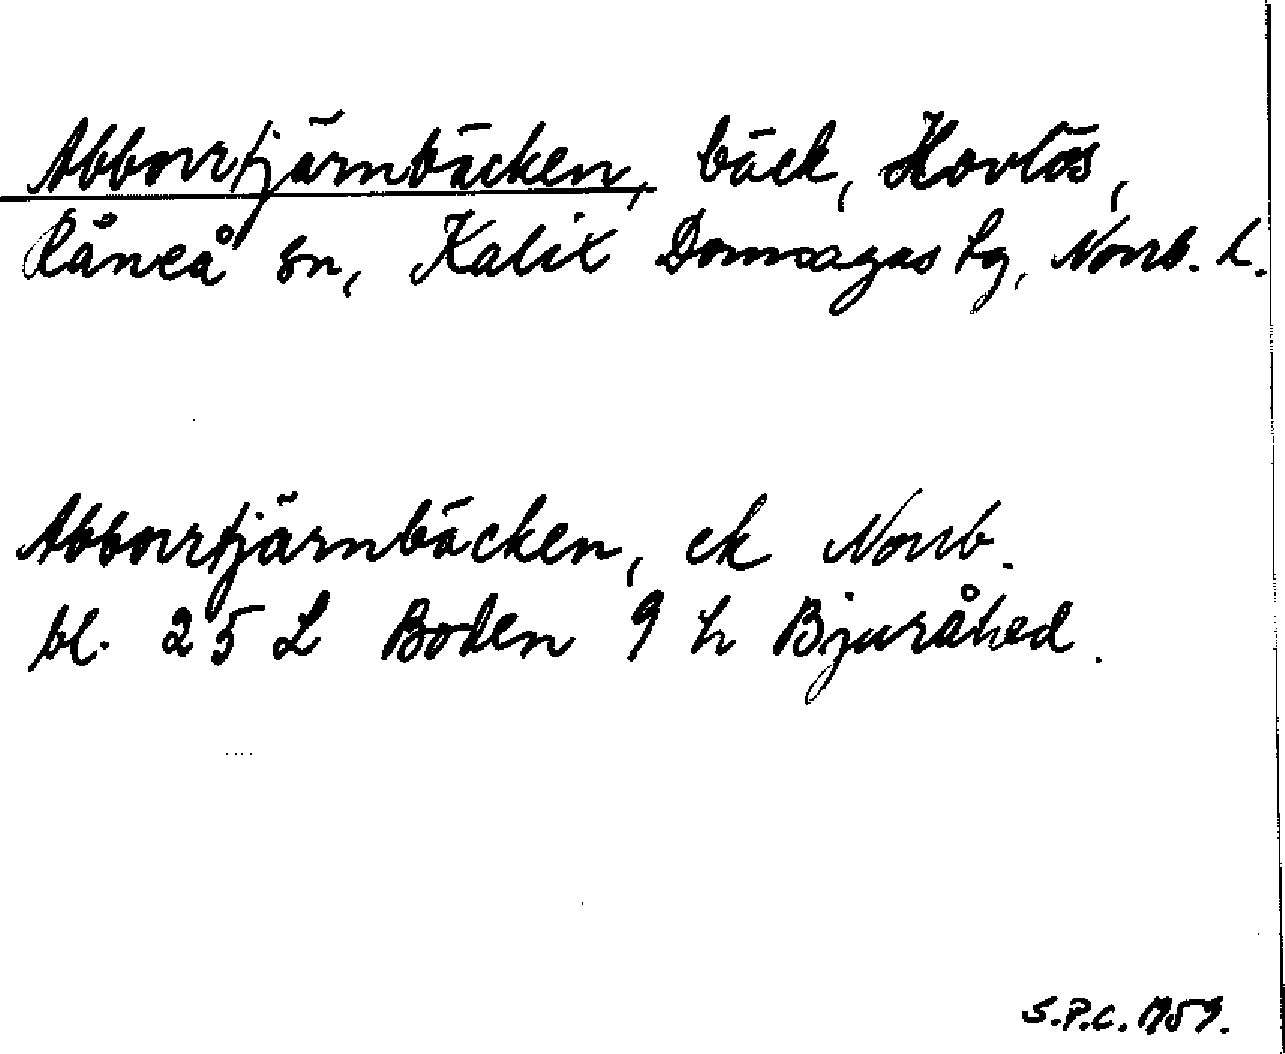 Abborrtjärnbäcken, bäck, Hovlös,
Råneå sn, Kalix Domsagas lg, Norrb. L.
Abborrtjärnbäcken, ek Norrb.
bl. 25 L Boden 9 h Bjuråhed.
S.P.C. 1959.